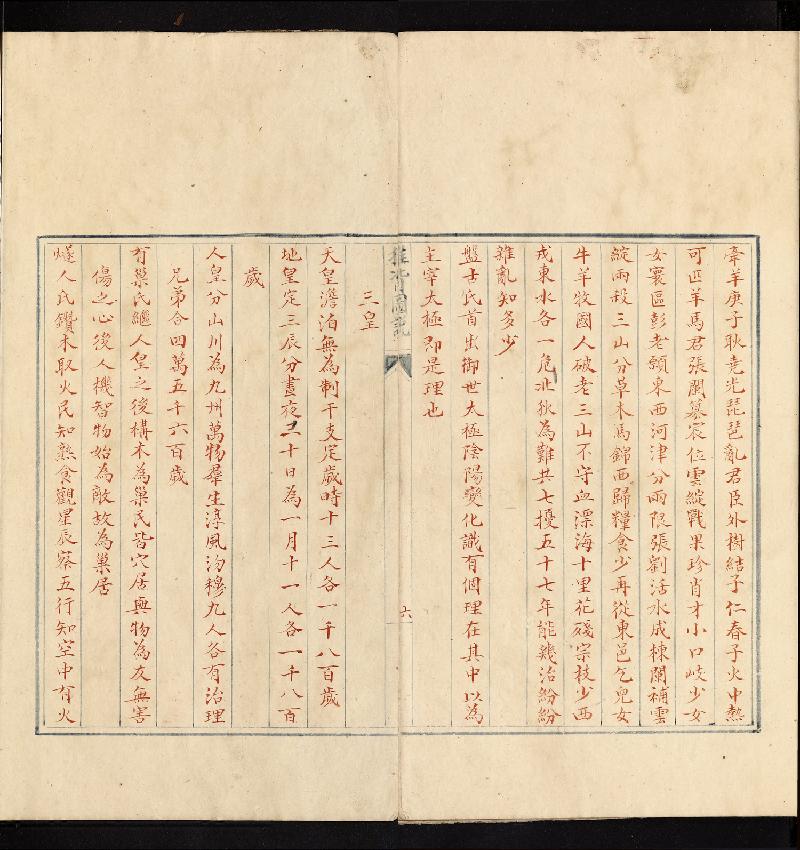 牽羊庚子耿堯光琵琶亂君臣外樹結子仁春子火中熱
可匹羊馬君張闌篡宸位雲綻戰果珍肖才小口岐少女
女襄區彭老頸東西河津分兩限張劉活水成棟闌補雲
綻兩殺三山分草木馮錦西歸糧食少再從東邑乞兒女
牛羊牧國人破老三山不守血漂海十里花殘宗枝少西
戎東水各一危北狄為難共七擾五十七年能幾治紛紛
離亂知多少
盤古氏首出御世太極陰陽變化識有個理在其中以為
主宰太極即是理也
推背圖說
六
三皇
天皇澹泊無為制干支定歲時十三人各一千八百歲
地皇定三辰分晝夜三十日為一月十一人各一千八百
歲
人皇分山川為九州萬物羣生淳風沕穆九人各有治理
兄弟合四萬五千六百歲
有巢氏繼人皇之後構木為巢民皆穴居與物為友無害
傷之心後人機智物始為敵故為巢居
燧人氏鑽木取火民知熟食觀星辰察五行知空中有火